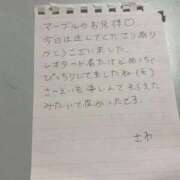 マーブルのお兄様♡
今日は逃してくださりあり
がとうございました。
レオタード着たけどめっちゃ
ぴっちりしてましたね(笑)
さーといも楽しんでもらえた
みたいで良かったです
さわ